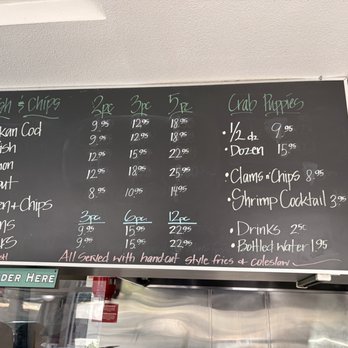 sh & Chips 2pc 3pc 5pc
kan Cod 9.95 12.95 18.95
ish 9.95 12.95 18.95
mon 12.95 15.95 22.95
out 12.95 18.95 25.95
en & Chips 8.95 10.95 14.95
3pc 6pc 12pc
ms 9.95 15.95 22.95
rs 9.95 15.95 22.95
All served with handcut style fries & coleslaw
Crab Puppies
• 1/2 dz 9.95
• Dozen 15.95
• Clams & Chips 8.95
• Shrimp Cocktail 3.95
• Drinks 25¢
• Bottled Water 1.95
DER HERE